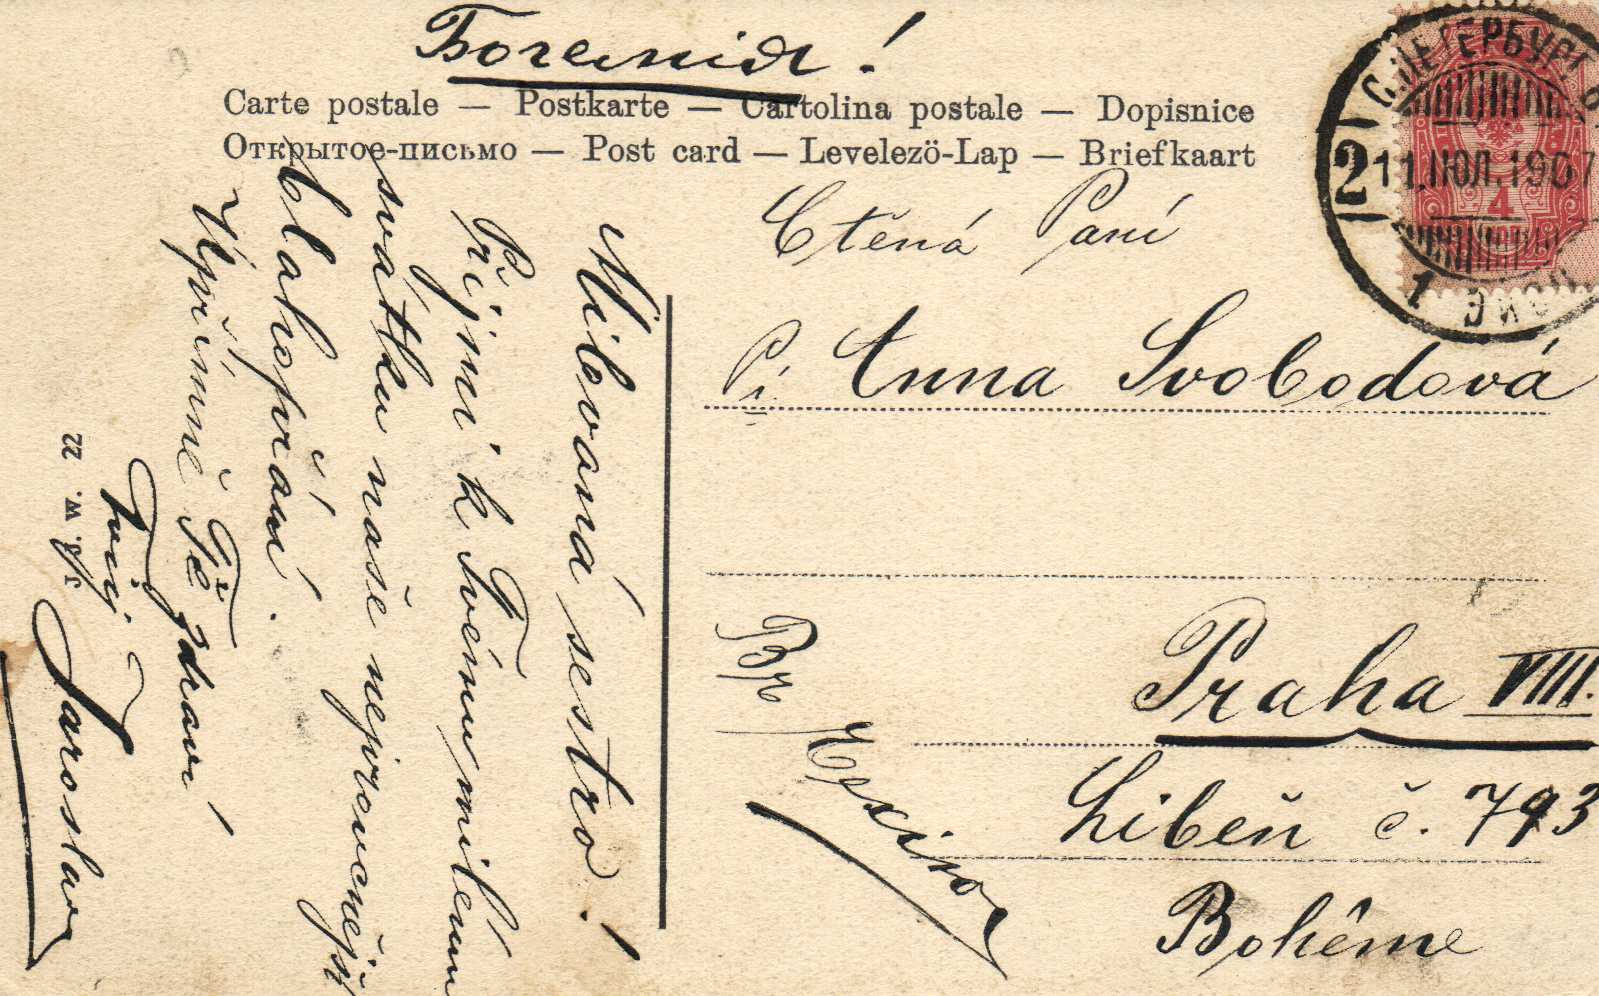 Богемія!
Carte postale — Postkarte — Cartolina postale — Dopisnice
Открытое-письмо — Post card — Levelezö-Lap — Briefkaart
С.ПЕТЕРБУРГЪ
2
11.ІЮЛ.1907
4
1
Ctěná Paní
Pí. Anna Svobodová
Praha VIII.
Libeň č. 793
Bohême
Milovaná sestro!
Přijmi k Tvému milému
svátku naše nejvroucnější
blahopřání.
Upřímně Tě zdraví
Tvůj
Jaroslav
22